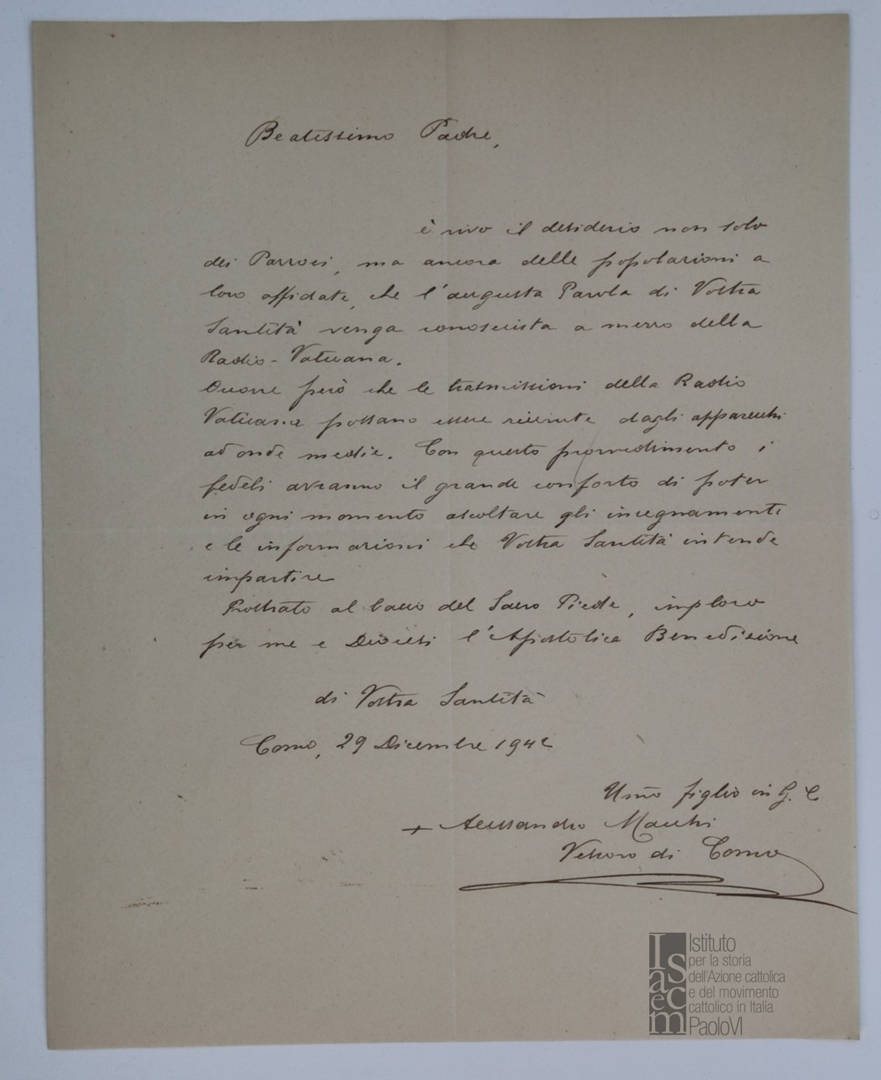 Beatissimo Padre,
è vivo il desiderio non solo
dei Parroci, ma ancora delle popolazioni a
loro affidate, che l'augusta Parola di Vostra
Santità venga conosciuta a mezzo della
Radio-Vaticana.
Occorre però che le trasmissioni della Radio
Vaticana possano essere ricevute dagli apparecchi
ad onde medie. Con questo provvedimento i
fedeli avranno il grande conforto di poter
in ogni momento ascoltare gli insegnamenti
e le informazioni che Vostra Santità intende
impartire
Prostrato al bacio del Sacro Piede, imploro
per me e Diocesi l'Apostolica Benedizione
di Vostra Santità
Como, 29 Dicembre 1942
Umo figlio in G. C
+ Alessandro Macchi
Vescovo di Como
Isacem
Istituto
per la storia
dell'Azione cattolica
e del movimento
cattolico in Italia
PaoloVI